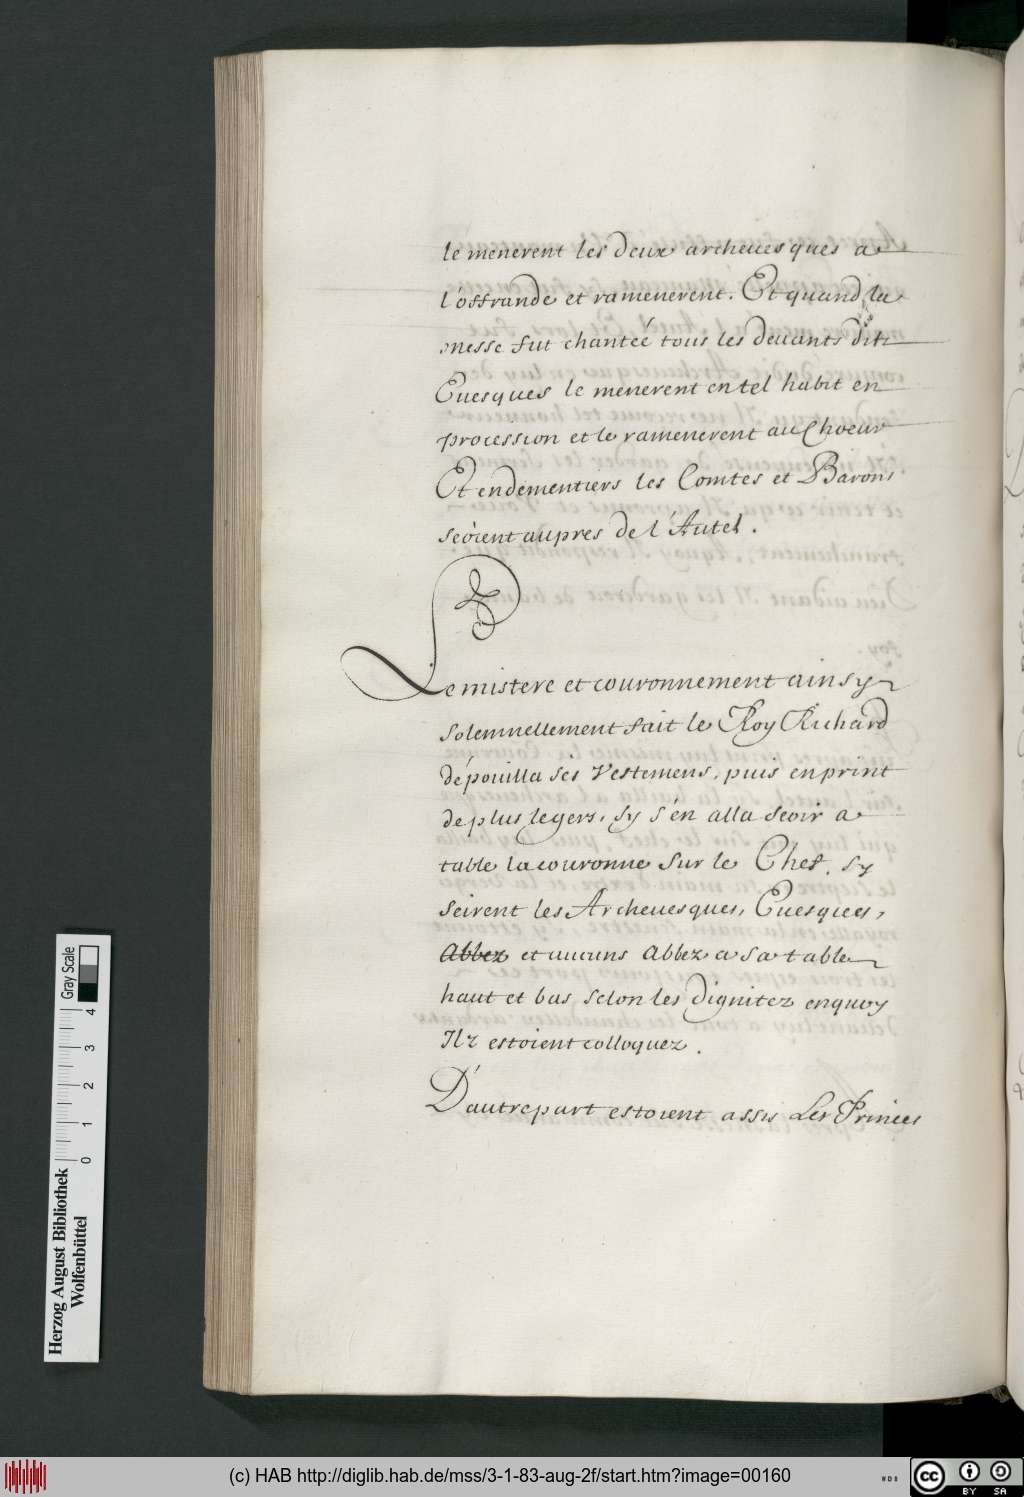 le menerent les deux archeuesques a
l'offrande et ramenerent. Et quand la
messe fut chantée tous les deuants dit
Euesques le menerent en tel habit en
procession et le ramenerent au Choeur
Et endementiers les Comtes et Barons
seoient aupres de l'Autel.
Le mistere et couronnement ainsy
solemnellement fait le Roy Richard
dépouilla ses Vestemens, puis en print
de plus legers, sy s'en alla seoir a
table la couronne sur le Chef, sy
seirent les Archeuesques, Euesques,
Abbez et aucuns Abbez a sa table
haut et bas selon les dignitez en quoy
Ilz estoient colloquez.
D'autre part estoient assis Les Princes
Herzog August Bibliothek
Wolfenbüttel
Gray Scale
0 1 2 3 4
(c) HAB http://diglib.hab.de/mss/3-1-83-aug-2f/start.htm?image=00160
WDB
cc BY SA